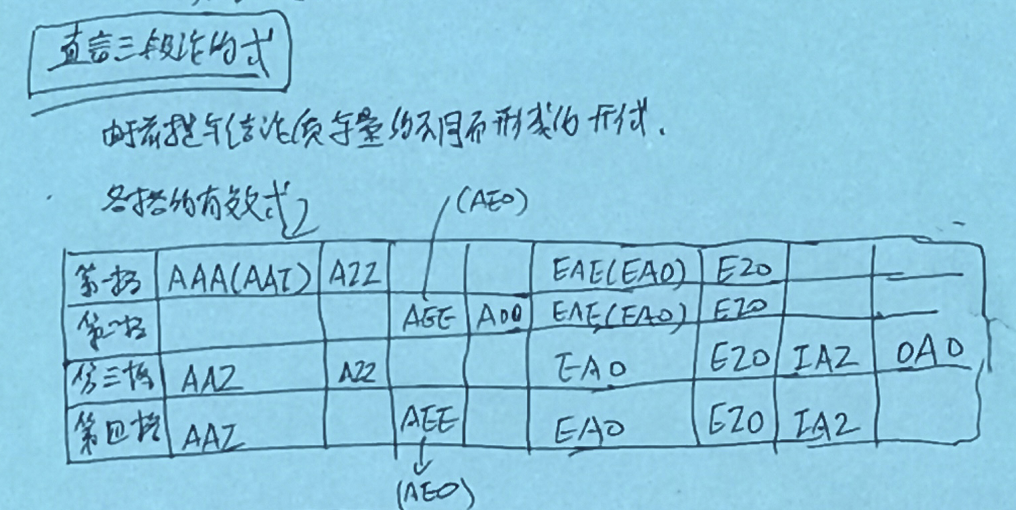 直言三段论的式
由于前提与结论质与量的不同而形成的形式.
各格的有效式
(AEO)
第一格 AAA(AAI) AII EAE(EAO) EIO
第二格 AEE AOO EAE(EAO) EIO
第三格 AAI AII EAO EIO IAI OAO
第四格 AAI AEE EAO EIO IAI
(AEO)